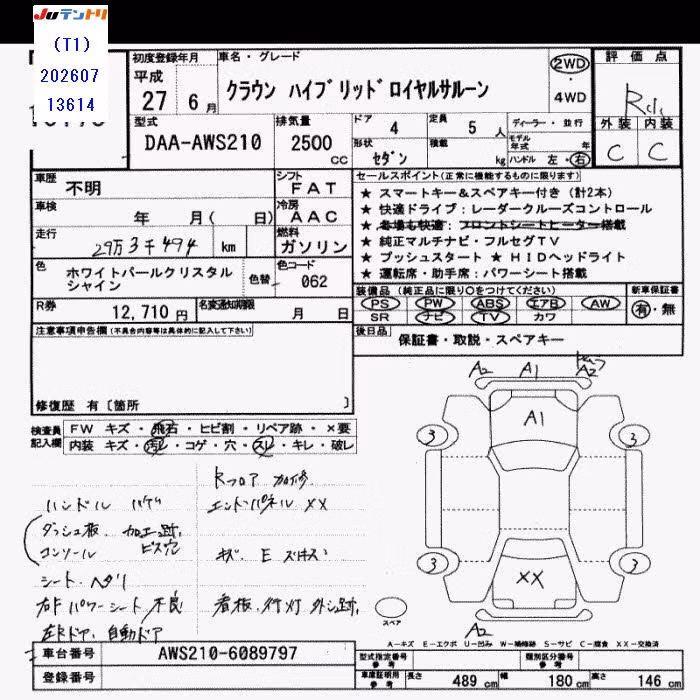 JUテントリ
(T1)
202607
13614
初度登録年月
平成
27 6月
車名・グレード
クラウン ハイブリッドロイヤルサルーン
2WD
4WD
評価点
外装 内装
C C
型式
DAA-AWS210
排気量
2500
CC
ドア 4
定員 5人
形状 セダン
積載 kg
ディーラー・並行
モデル年式 年式
ハンドル 左・右
車歴 不明
シフト
FAT
車検 年 月( 日)
冷房
AAC
走行 29万3千494 km
燃料
ガソリン
色 ホワイトパールクリスタルシャイン
色替
色コード
062
R券 12,710円
名変通知期限 月 日
セールスポイント(正常に機能するものに限ります)
★ スマートキー&スペアキー付き(計2本)
★ 快適ドライブ:レーダークルーズコントロール
★ 冬場も快適:フロントシートヒーター搭載
★ 純正マルチナビ・フルセグTV
★ プッシュスタート ★ HIDヘッドライト
★ 運転席・助手席:パワーシート搭載
装備品(純正品に限り○をつけてください)
PS PW ABS エアB AW
SR ナビ TV カワ
新車保証書
有・無
後日品 保証書・取説・スペアキー
注意事項申告欄(不具合内容等は具体的に記入して下さい)
修復歴 有〔箇所 〕
検査員記入欄
FW キズ・飛石・ヒビ割・リペア跡・×要
内装 キズ・汚レ・コゲ・穴・スレ・キレ・破レ
Rフロア 加修
ハンドル ハゲ
エンドパネル XX
ダッシュ板、加工跡、
コンソール ビス穴
キズ、E
シート、ヘタリ
右F パワーシート 不良
看板、行灯 外し跡、
左Rドア、自動ドア
A2 A1 A2
A1
3 3
3 3
XX
A2
スペア
A-キズ E-エクボ U-凹み W-補修跡 S-サビ C-腐食 XX-交換済
車台番号 AWS210-6089797
登録番号
型式指定番号 参考
類別区分番号 参考
車庫証明用 参考
長さ 489 cm
幅 180 cm
高さ 146 cm